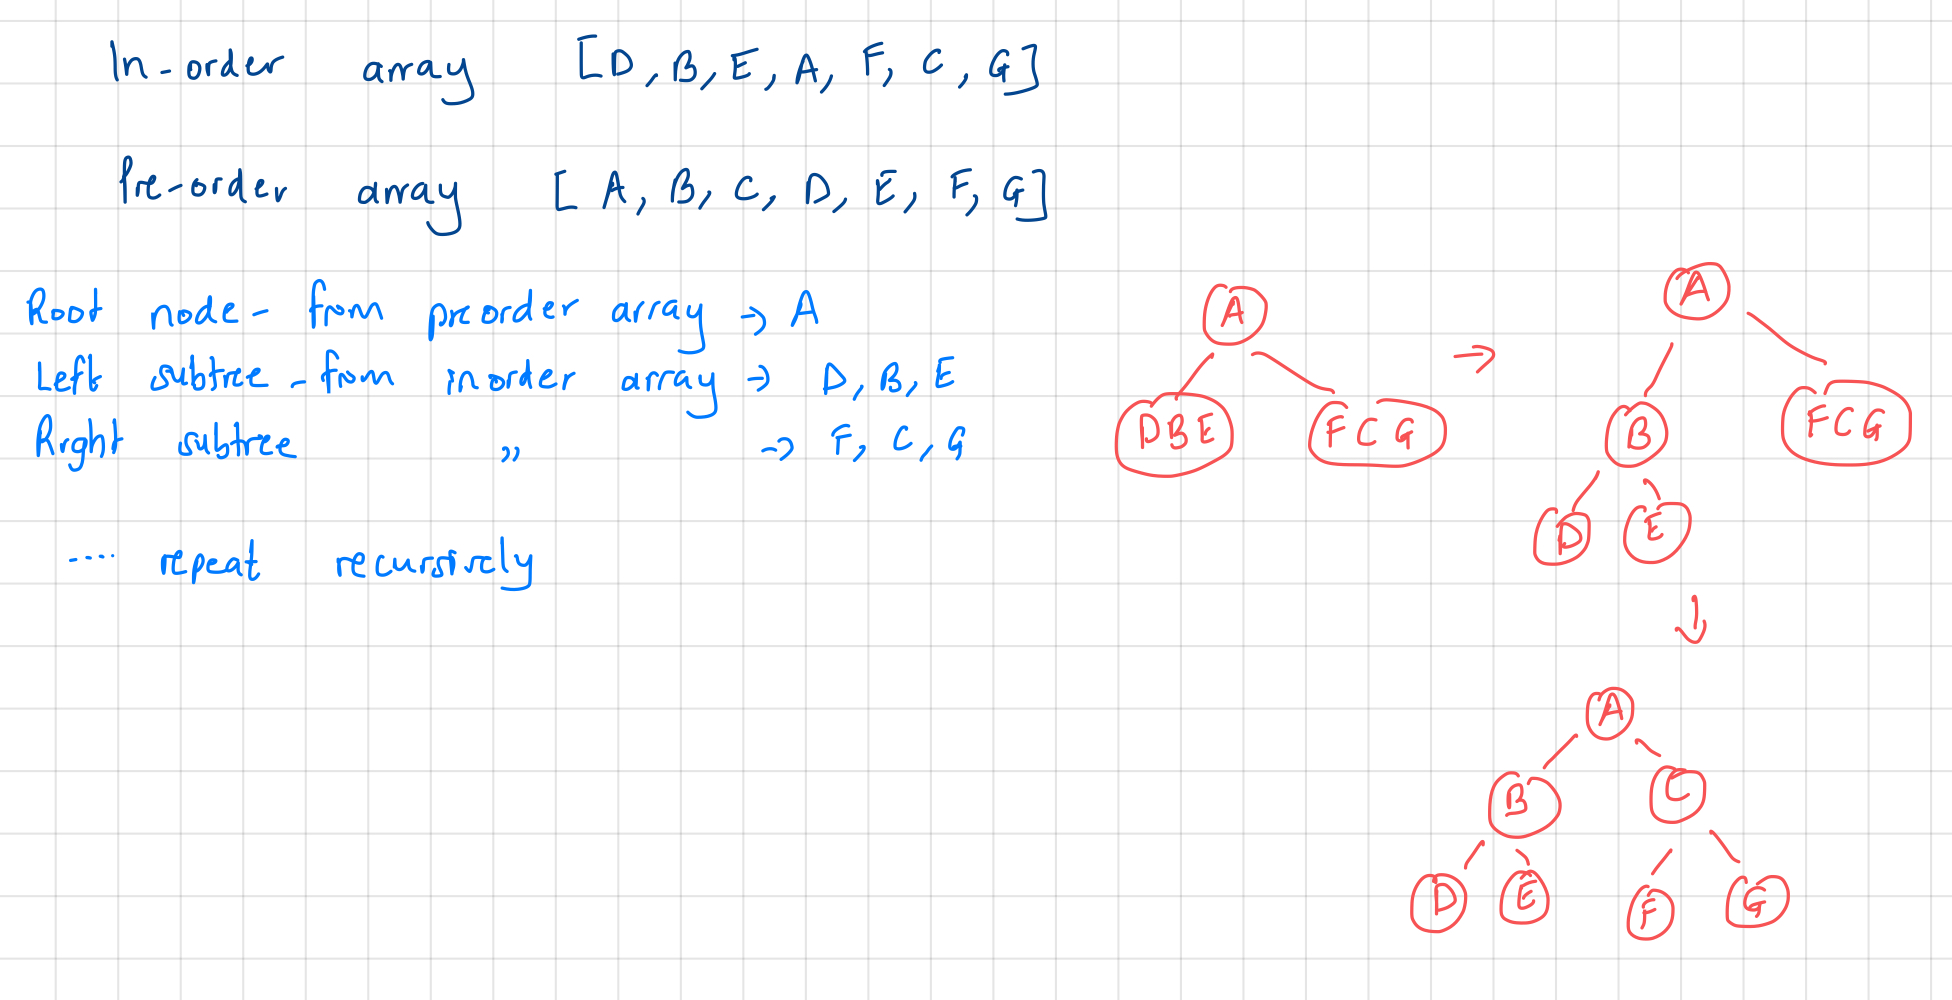 In-order array [D, B, E, A, F, C, G]
Pre-order array [ A, B, C, D, E, F, G]
Root node - from preorder array → A
Left subtree - from inorder array → D, B, E
Right subtree " → F, C, G
.... repeat recursively
A
DBE FCG
→
A
B FCG
D E
↓
A
B C
D E F G